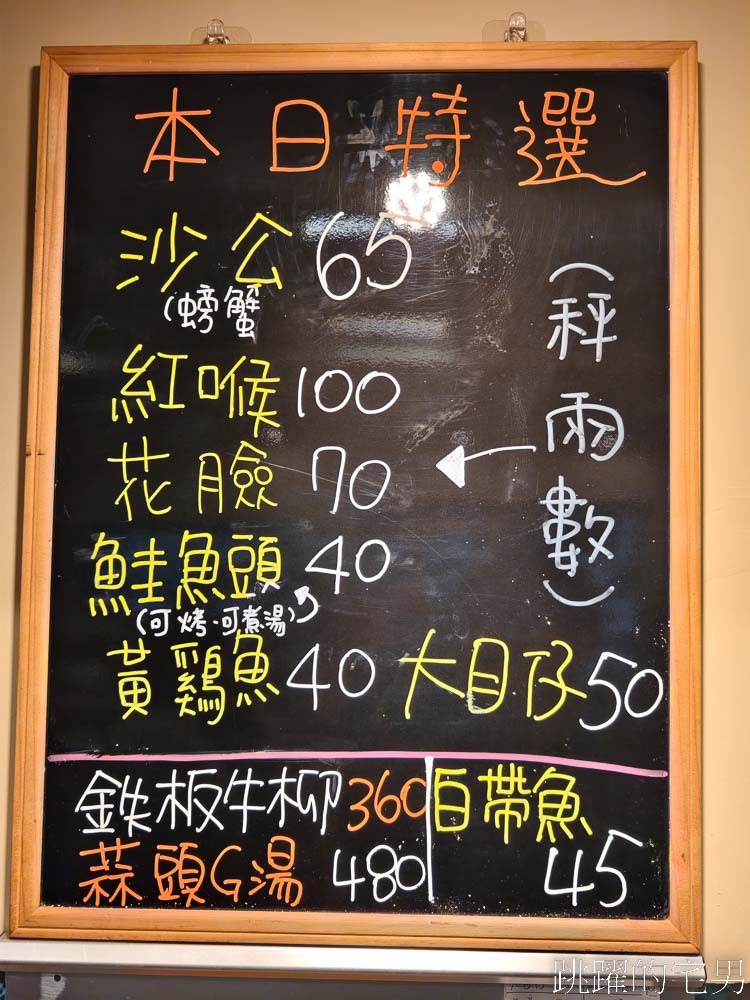 本日特選
沙公 65
(螃蟹
紅喉 100
花臉 70
鮭魚頭 40
(可烤.可煮湯)
黃鷄魚 40
大目仔 50
(秤兩數)
鉄板牛柳 360
蒜頭G湯 480
白帶魚
45
跳躍的宅男